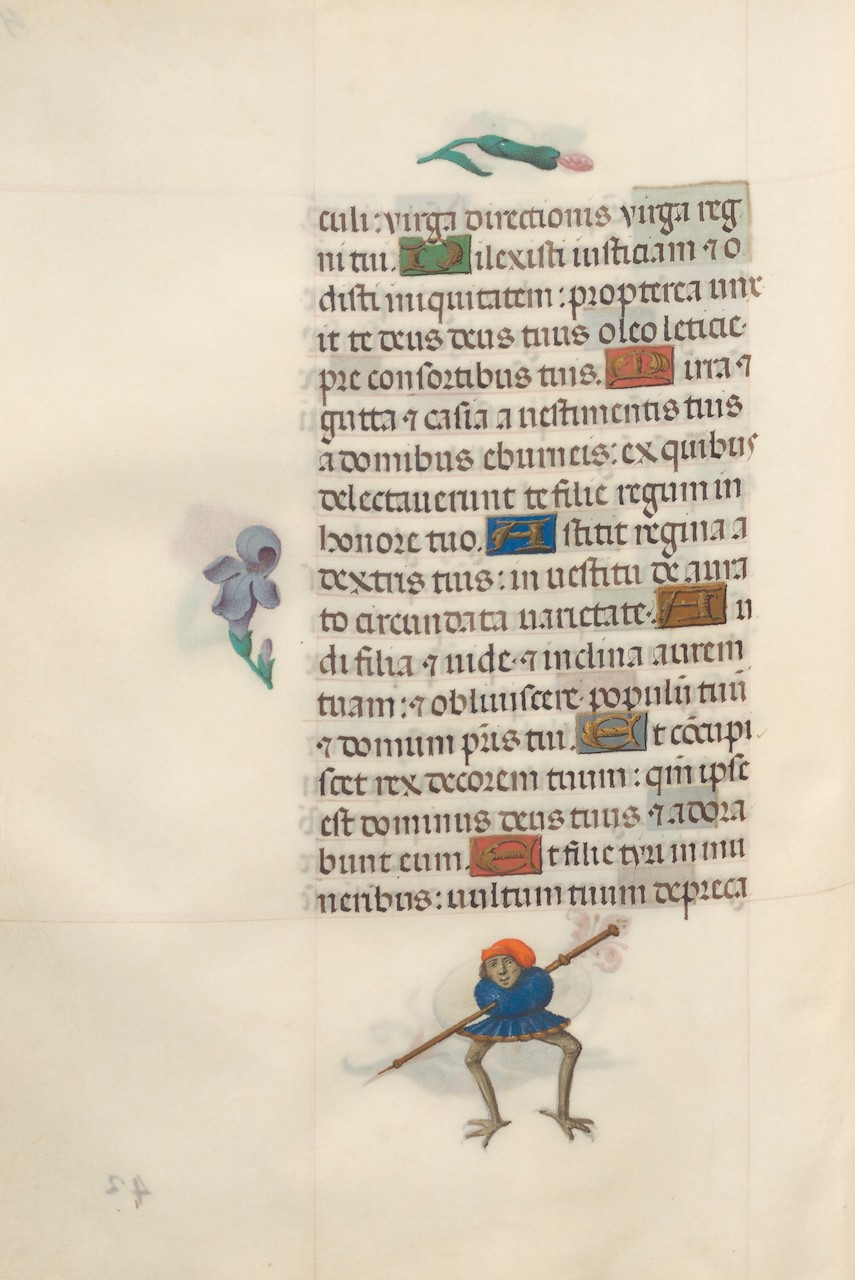 culi : virga directionis virga reg
ni tui. Dilexisti iusticiam ⁊ o
disti iniquitatem : propterea unx
it te deus deus tuus oleo leticie
pre consortibus tuis. Mirra ⁊
gutta ⁊ casia a uestimentis tuis
a domibus eburneis : ex quibus
delectauerunt te filie regum in
honore tuo. Astitit regina a
dextris tuis : in uestitu de aura
to circundata uarietate. Au
di filia ⁊ uide ⁊ inclina aurem
tuam : ⁊ obliuiscere populū tuū
⁊ domum p̄ris tui. Et cōcupi
scet rex decorem tuum : qm̄ ipse
est dominus deus tuus ⁊ adora
bunt eum. Et filie tyri in mu
neribus : uultum tuum depreca
42